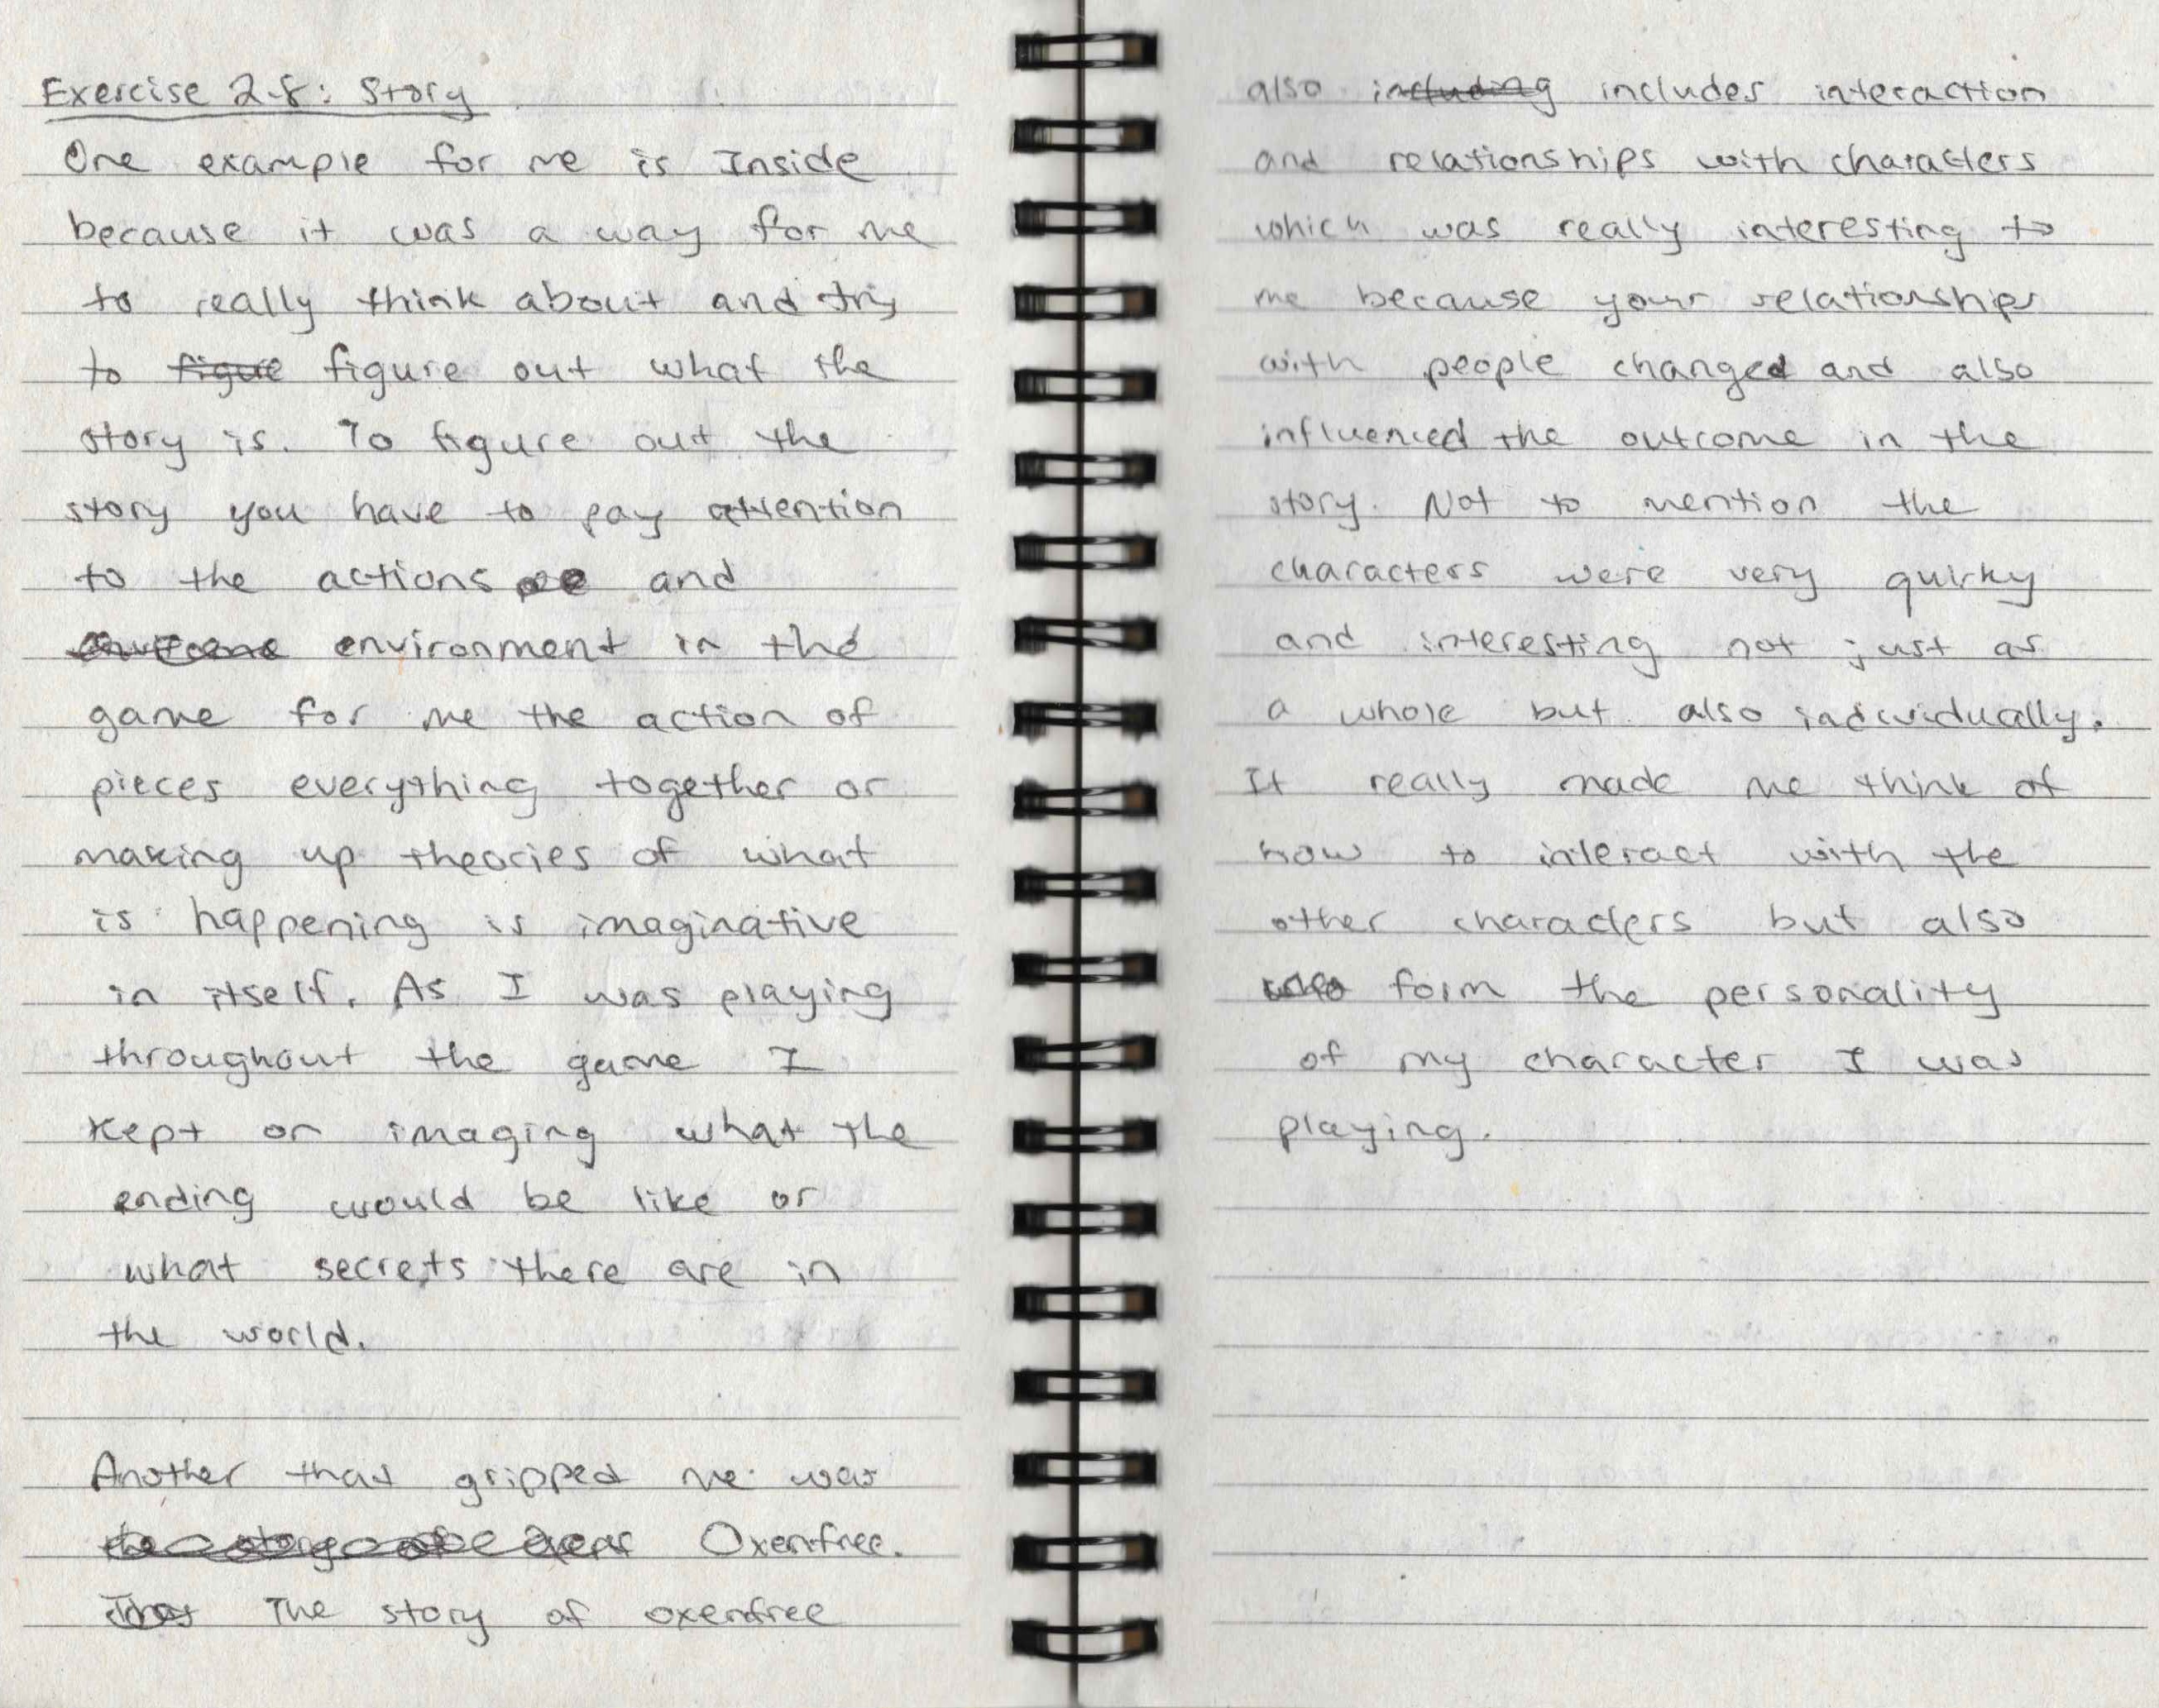 Exercise 2.8: Story
One example for me is Inside
because it was a way for me
to really think about and try
to figue figure out what the
story is. To figure out the
story you have to pay attention
to the actions and
environment in the
game for me the action of
pieces everything together or
making up theories of what
is happening is imaginative
in itself. As I was playing
throughout the game I
kept on imaging what the
ending would be like or
what secrets there are in
the world.
Another that gripped me was
Oxenfree.
The story of oxenfree
also including includes interaction
and relationships with characters
which was really interesting to
me because your relationships
with people changed and also
influenced the outcome in the
story. Not to mention the
characters were very quirky
and interesting not just as
a whole but also individually.
It really made me think of
how to interact with the
other characters but also
form the personality
of my character I was
playing.